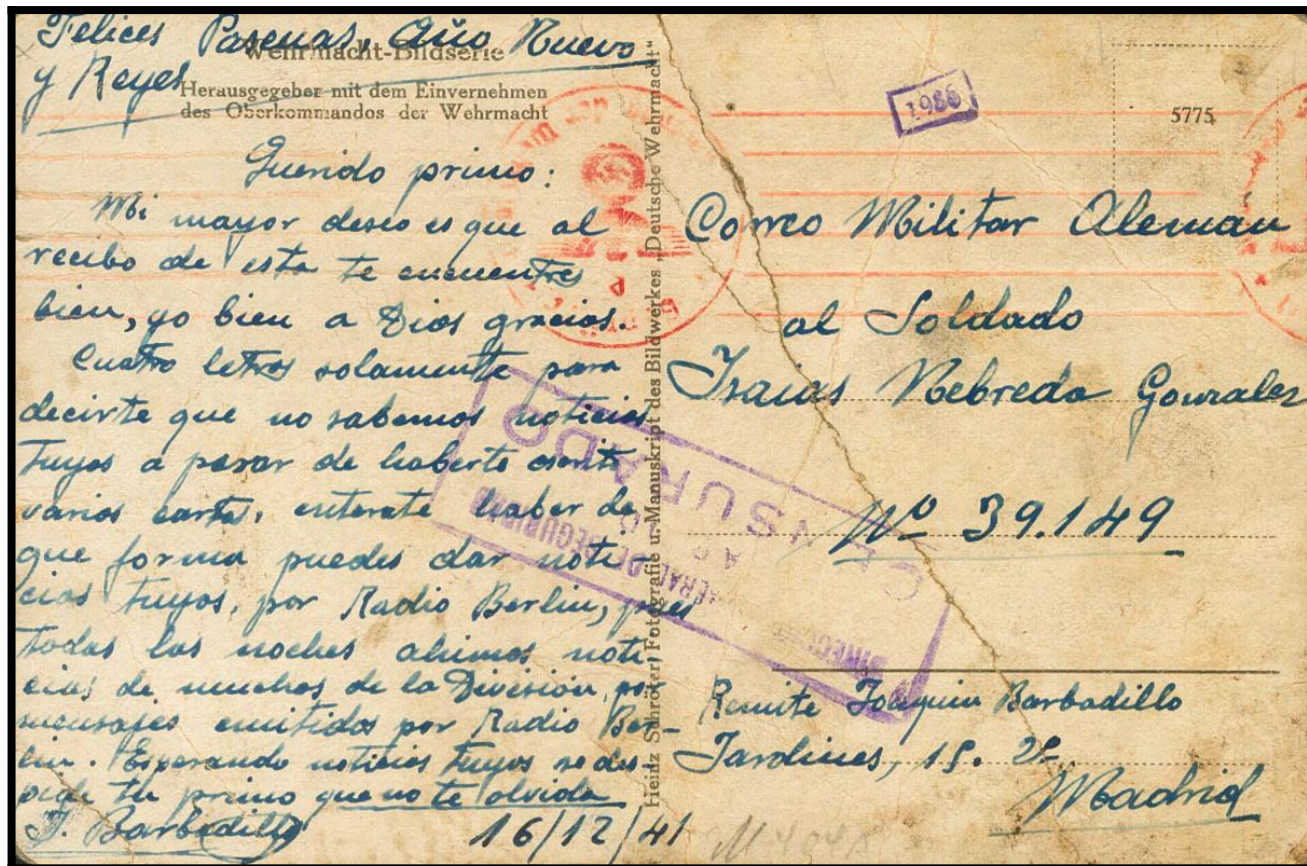 Felices Pascuas, Año Nuevo
y Reyes
Wehrmacht-Bildserie
Herausgegeber mit dem Einvernehmen
des Oberkommandos der Wehrmacht
Querido primo:
Mi mayor deseo es que al
recibo de esta te encuentres
bien, yo bien a Dios gracias.
Cuatro letras solamente para
decirte que no sabemos noticias
tuyas a pesar de haberte escrito
varias cartas, enterate haber de
que forma puedes dar noti-
cias tuyas, por Radio Berlin, pues
todas las noches ahimos noti
cias de muchos de la División, por
mensajes emitidos por Radio Ber-
lin. Esperando noticias tuyas se des-
pide tu primo que no te olvida
J. Barbadillo
16/12/41
Heinz Schröter, Fotografie u. Manuskript des Bildwerkes „Deutsche Wehrmacht“
1986
5775
Correo Militar Aleman
al Soldado
Isaias Nebreda Gonzalez
Nº 39.149
CENSURADO
DIRECCION GENERAL DE SEGURIDAD
Remite Joaquin Barbadillo
Jardines, 15. 2º
Madrid